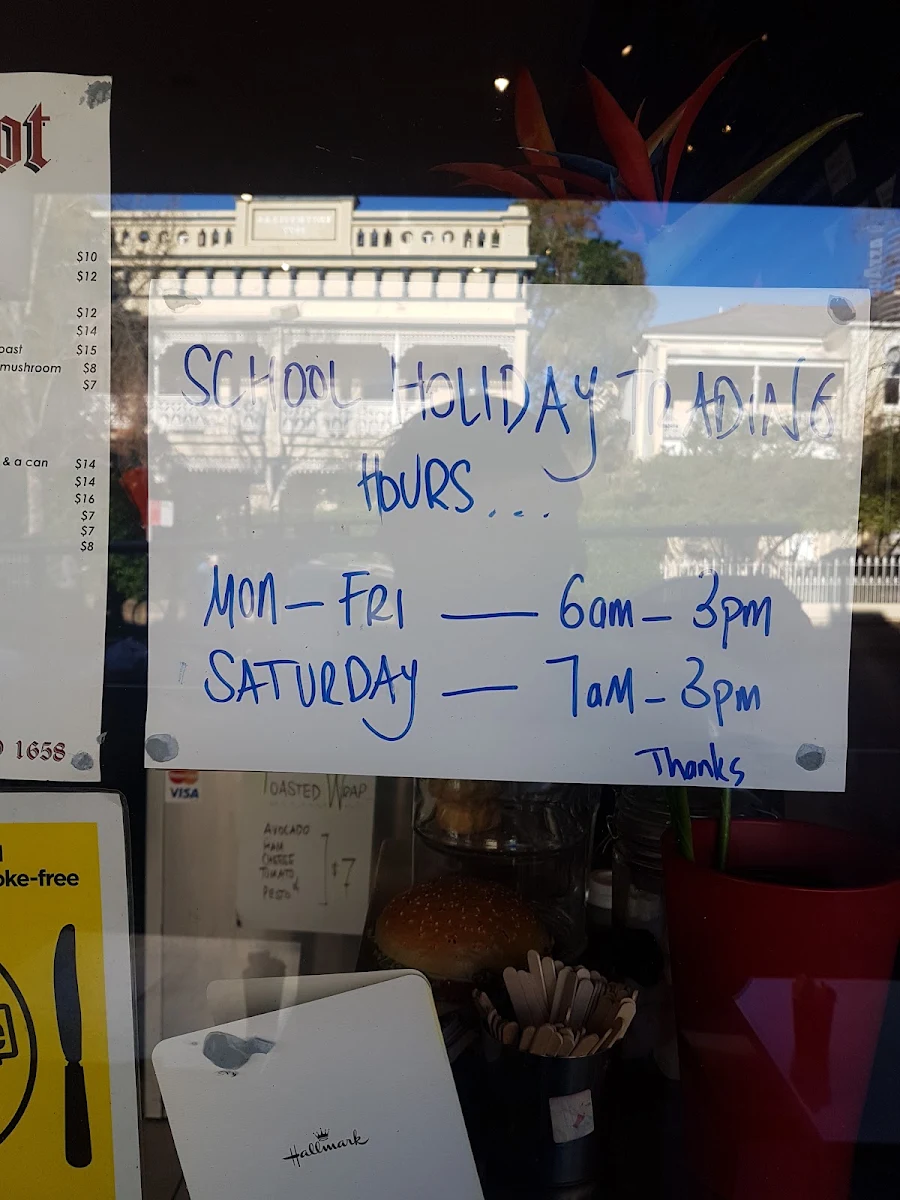 ot
$10
$12
$12
$14
oast $15
mushroom $8
$7
& a can $14
$14
$16
$7
$7
$8
1658
SCHOOL HOLIDAY TRADING
HOURS...
MON - FRI — 6am - 3pm
SATURDAY — 7am - 3pm
Thanks
VISA
TOASTED WRAP
AVOCADO
HAM
CHEESE
TOMATO
PESTO
$7
oke-free
Hallmark